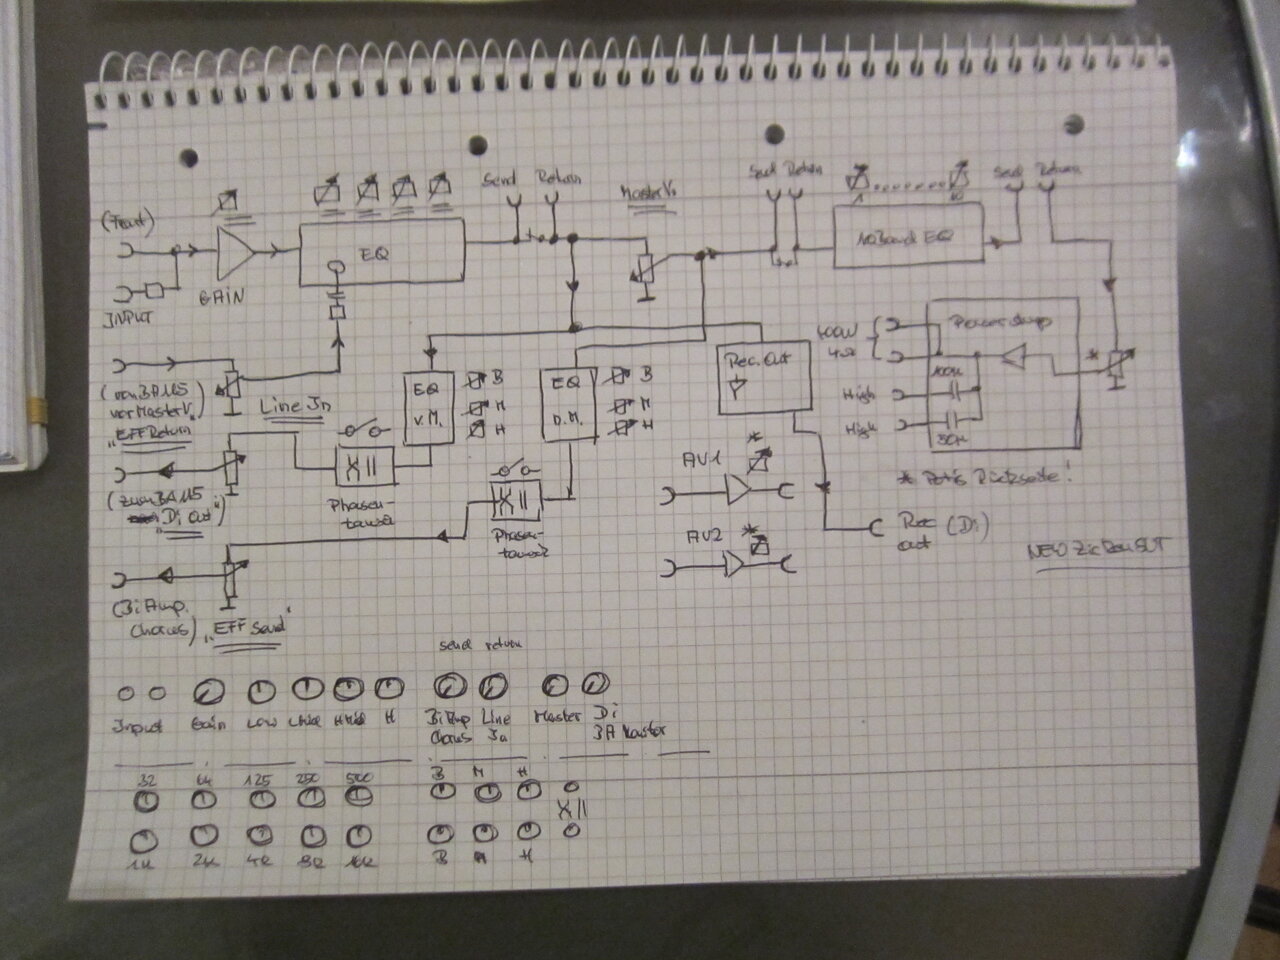 Send Return
Master V.
Send Return
Send Return
1 10
(Front)
INPUT
GAIN
EQ
10 Band EQ
(von BA115
vor Master V.)
"EFF Return"
Line In
EQ
V.M.
B
M
H
EQ
D.M.
B
M
H
Rec. Out
100W
4Ω
High
High
100µ
50µ
*
* Potis Rückseite!
(zum BA115
"Di out")
Phasen-
tausch
Phasen-
tausch
AV1
*
AV2
*
Rec (Di)
out
(BiAmp.
Chorus)
"EFF Send"
send return
Input
Gain
Low
LMid
HMid
H
BiAmp
Chorus
Line
In
Master
Di
BA Master
32 64 125 250 500
B M H
X ||
1K 2K 4K 8K 16K
B M H